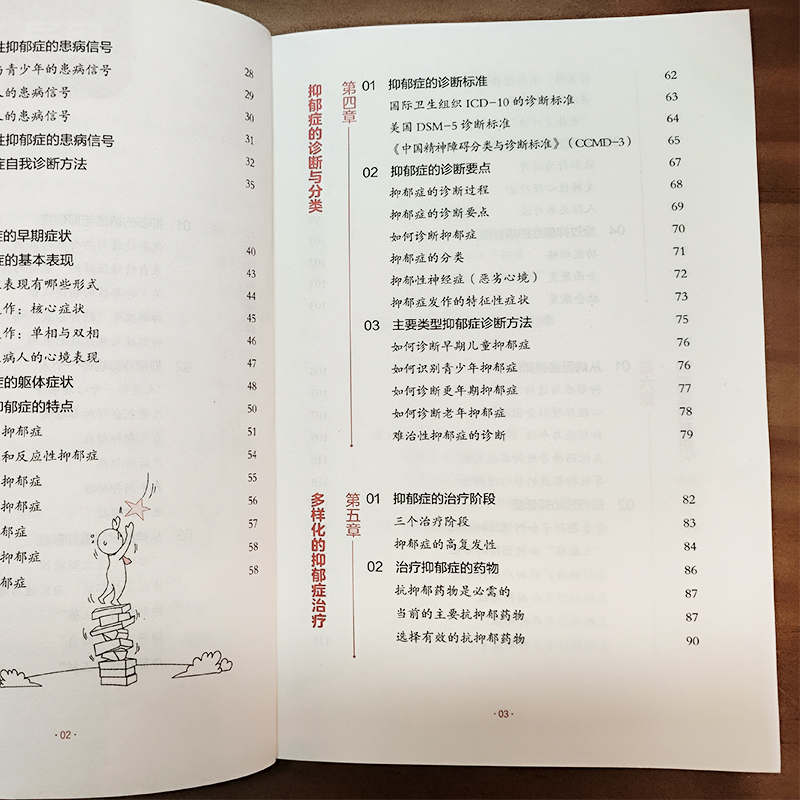 性抑郁症的患病信号
与青少年的患病信号 28
人的患病信号 29
人的患病信号 30
性抑郁症的患病信号 31
症自我诊断方法 32
35
症的早期症状
症的基本表现 40
表现有哪些形式 43
作：核心症状 44
作：单相与双相 45
病人的心境表现 46
症的躯体症状 47
抑郁症的特点 48
抑郁症 50
和反应性抑郁症 51
抑郁症 54
抑郁症 55
郁症 56
抑郁症 57
郁症 58
58
·02·
第四章
抑郁症的诊断与分类
01 抑郁症的诊断标准 62
国际卫生组织 ICD-10 的诊断标准 63
美国 DSM-5 诊断标准 64
《中国精神障碍分类与诊断标准》（CCMD-3） 65
02 抑郁症的诊断要点 67
抑郁症的诊断过程 68
抑郁症的诊断要点 69
如何诊断抑郁症 70
抑郁症的分类 71
抑郁性神经症（恶劣心境） 72
抑郁症发作的特征性症状 73
03 主要类型抑郁症诊断方法 75
如何诊断早期儿童抑郁症 76
如何识别青少年抑郁症 76
如何诊断更年期抑郁症 77
如何诊断老年抑郁症 78
难治性抑郁症的诊断 79
第五章
多样化的抑郁症治疗
01 抑郁症的治疗阶段 82
三个治疗阶段 83
抑郁症的高复发性 84
02 治疗抑郁症的药物 86
抗抑郁药物是必需的 87
当前的主要抗抑郁药物 87
选择有效的抗抑郁药物 90
·03·